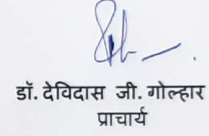 डॉ. देविदास जी. गोल्हार
प्राचार्य